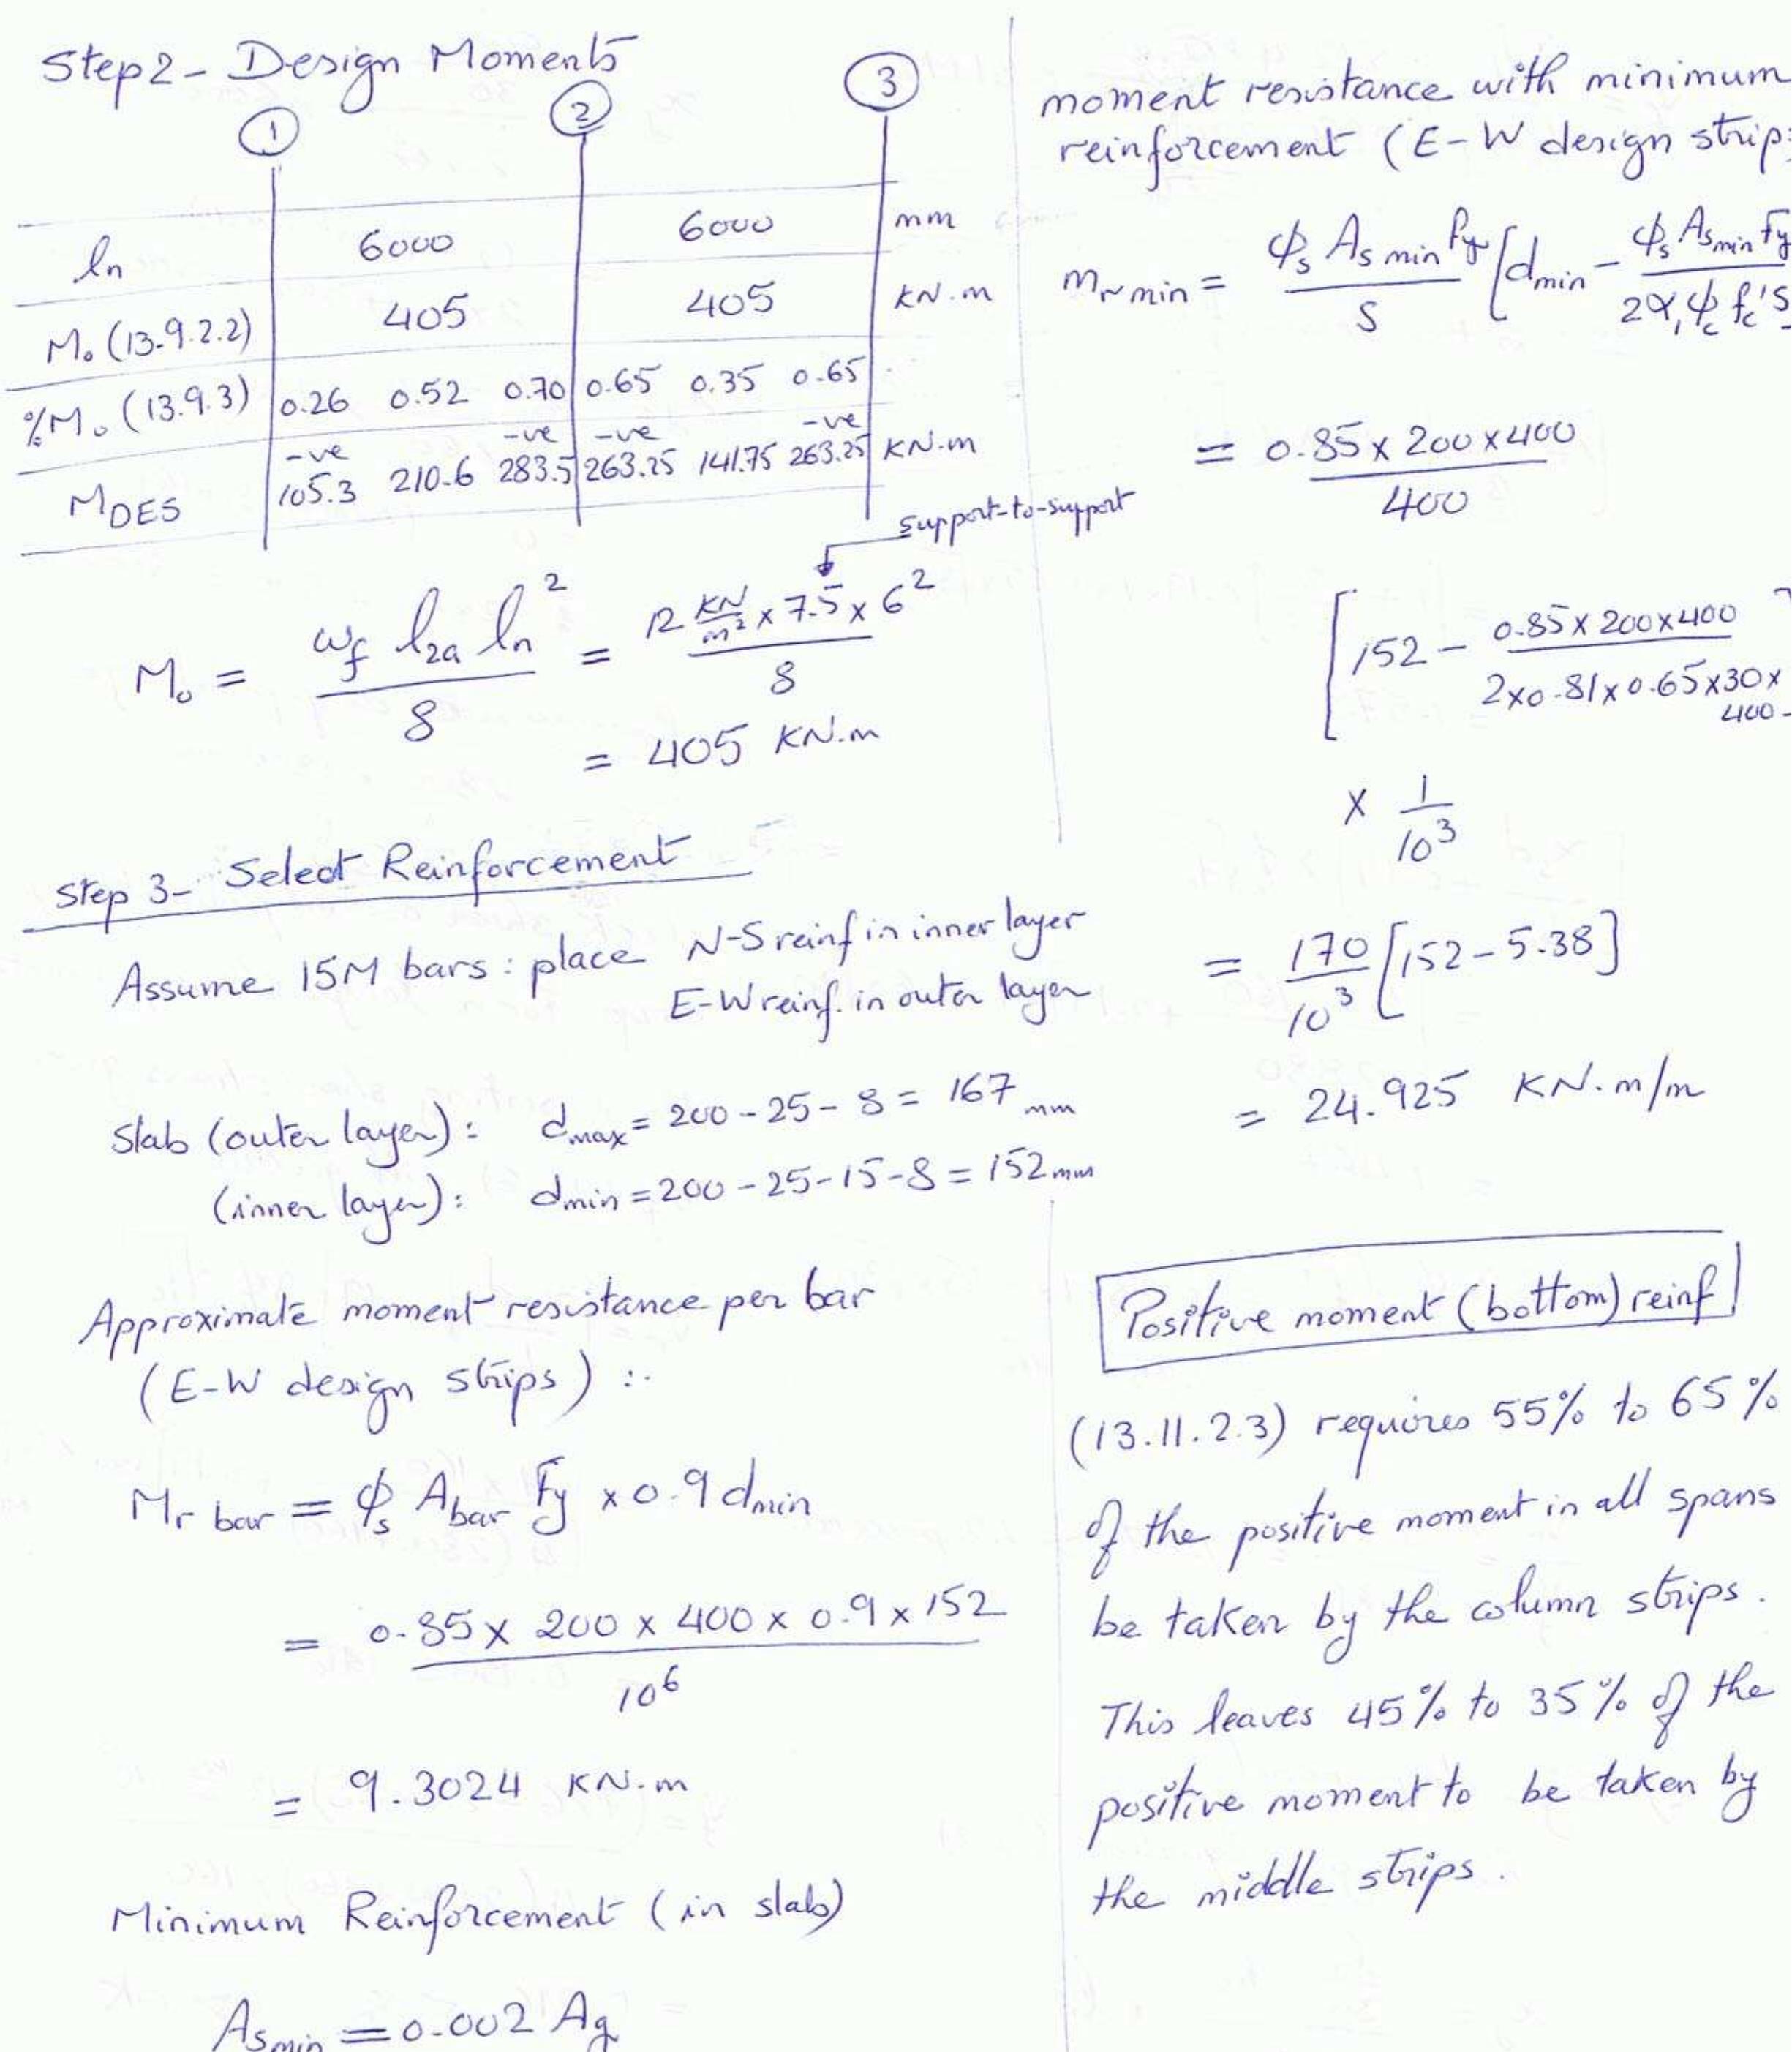 Step 2 - Design Moments
1 2 3
ln 6000 6000 mm
Mo (13.9.2.2) 405 405 KN.m
%Mo (13.9.3) 0.26 0.52 0.70 0.65 0.35 0.65
-ve -ve -ve -ve
MDES 105.3 210.6 283.5 263.25 141.75 263.25 KN.m
support-to-support
Mo = wf l2a ln² / 8 = 12 KN/m² x 7.5 x 6² / 8
= 405 KN.m
Step 3 - Select Reinforcement
Assume 15M bars : place N-S reinf in inner layer
E-W reinf. in outer layer
Slab (outer layer) : dmax = 200 - 25 - 8 = 167 mm
(inner layer) : dmin = 200 - 25 - 15 - 8 = 152 mm
Approximate moment resistance per bar
(E-W design strips) :.
Mr bar = ϕs Abar Fy x 0.9 dmin
= 0.85 x 200 x 400 x 0.9 x 152 / 10⁶
= 9.3024 KN.m
Minimum Reinforcement (in slab)
Asmin = 0.002 Ag
moment resistance with minimum
reinforcement (E-W design strips
mr min = ϕs As min Fy / S [dmin - ϕs Asmin Fy / 2α1 ϕc fc' S
= 0.85 x 200 x 400 / 400
[152 - 0.85 x 200 x 400 / 2 x 0.81 x 0.65 x 30 x 400]
x 1 / 10³
= 170 / 10³ [152 - 5.38]
= 24.925 KN.m/m
Positive moment (bottom) reinf
(13.11.2.3) requires 55% to 65%
of the positive moment in all spans
be taken by the column strips.
This leaves 45% to 35% of the
positive moment to be taken by
the middle strips.